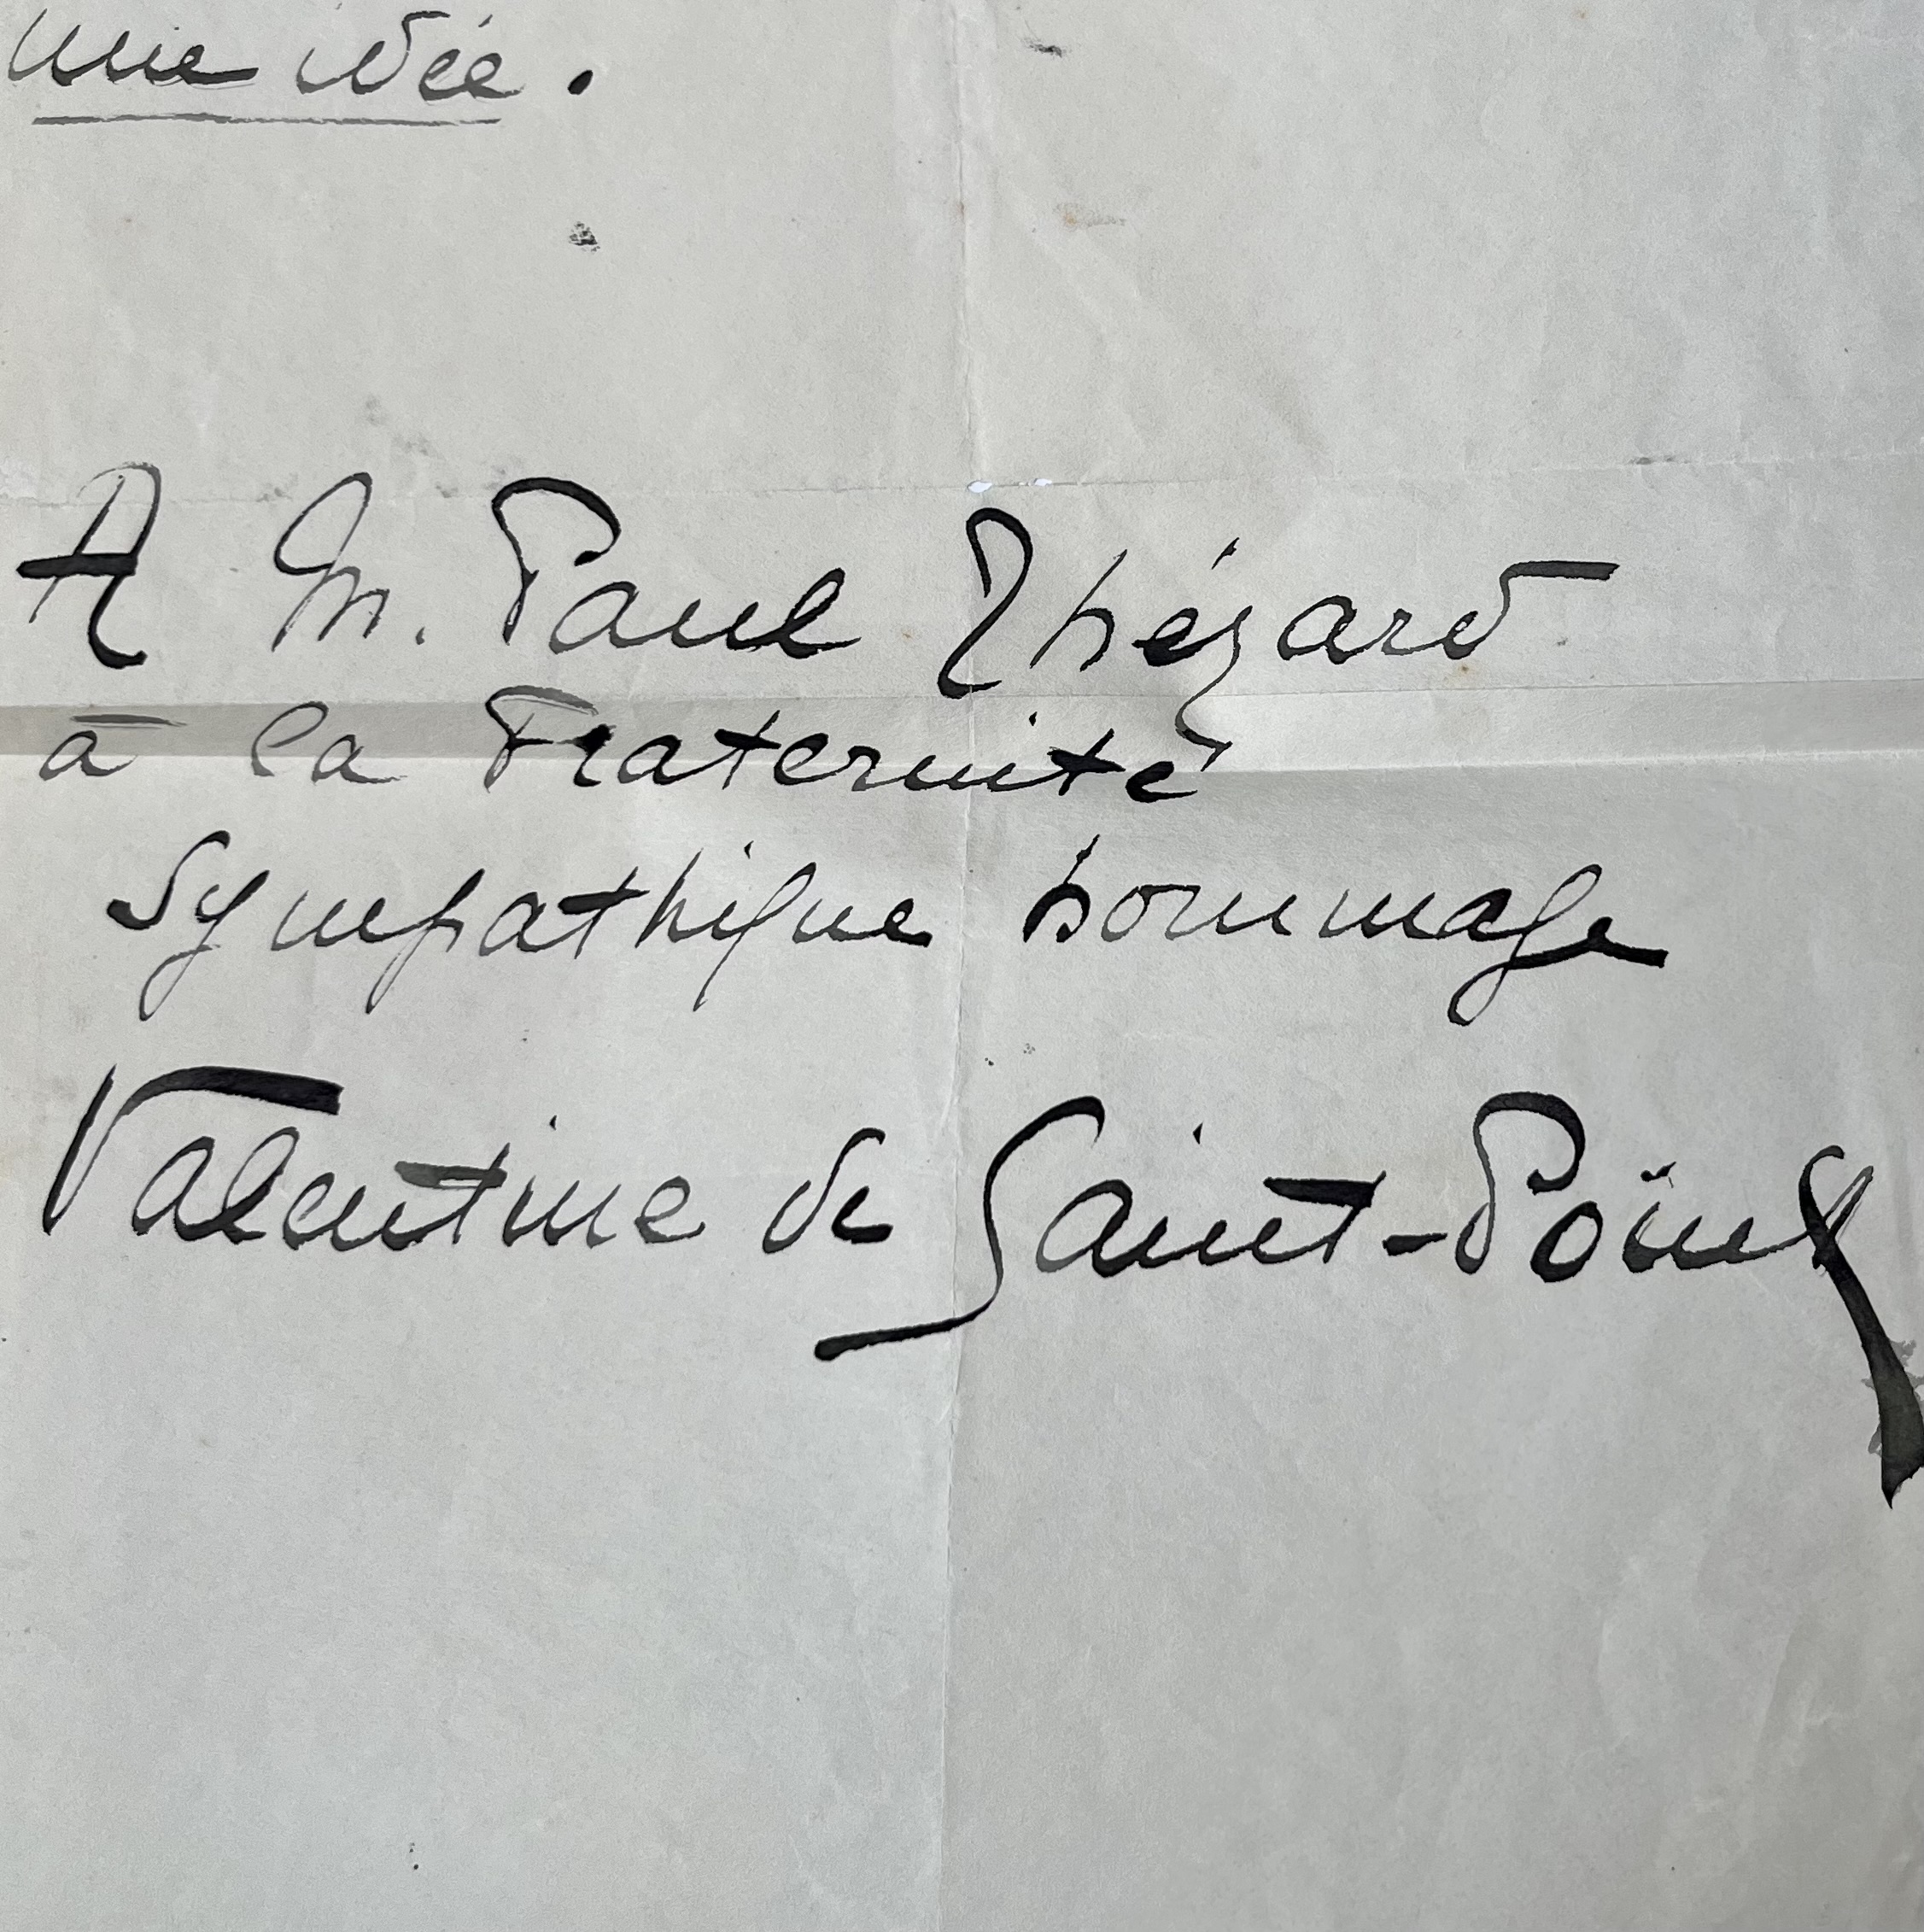 une idée.
A M. Paul Thézard
à la Fraternité
sympathique hommage
Valentine de Saint-Point